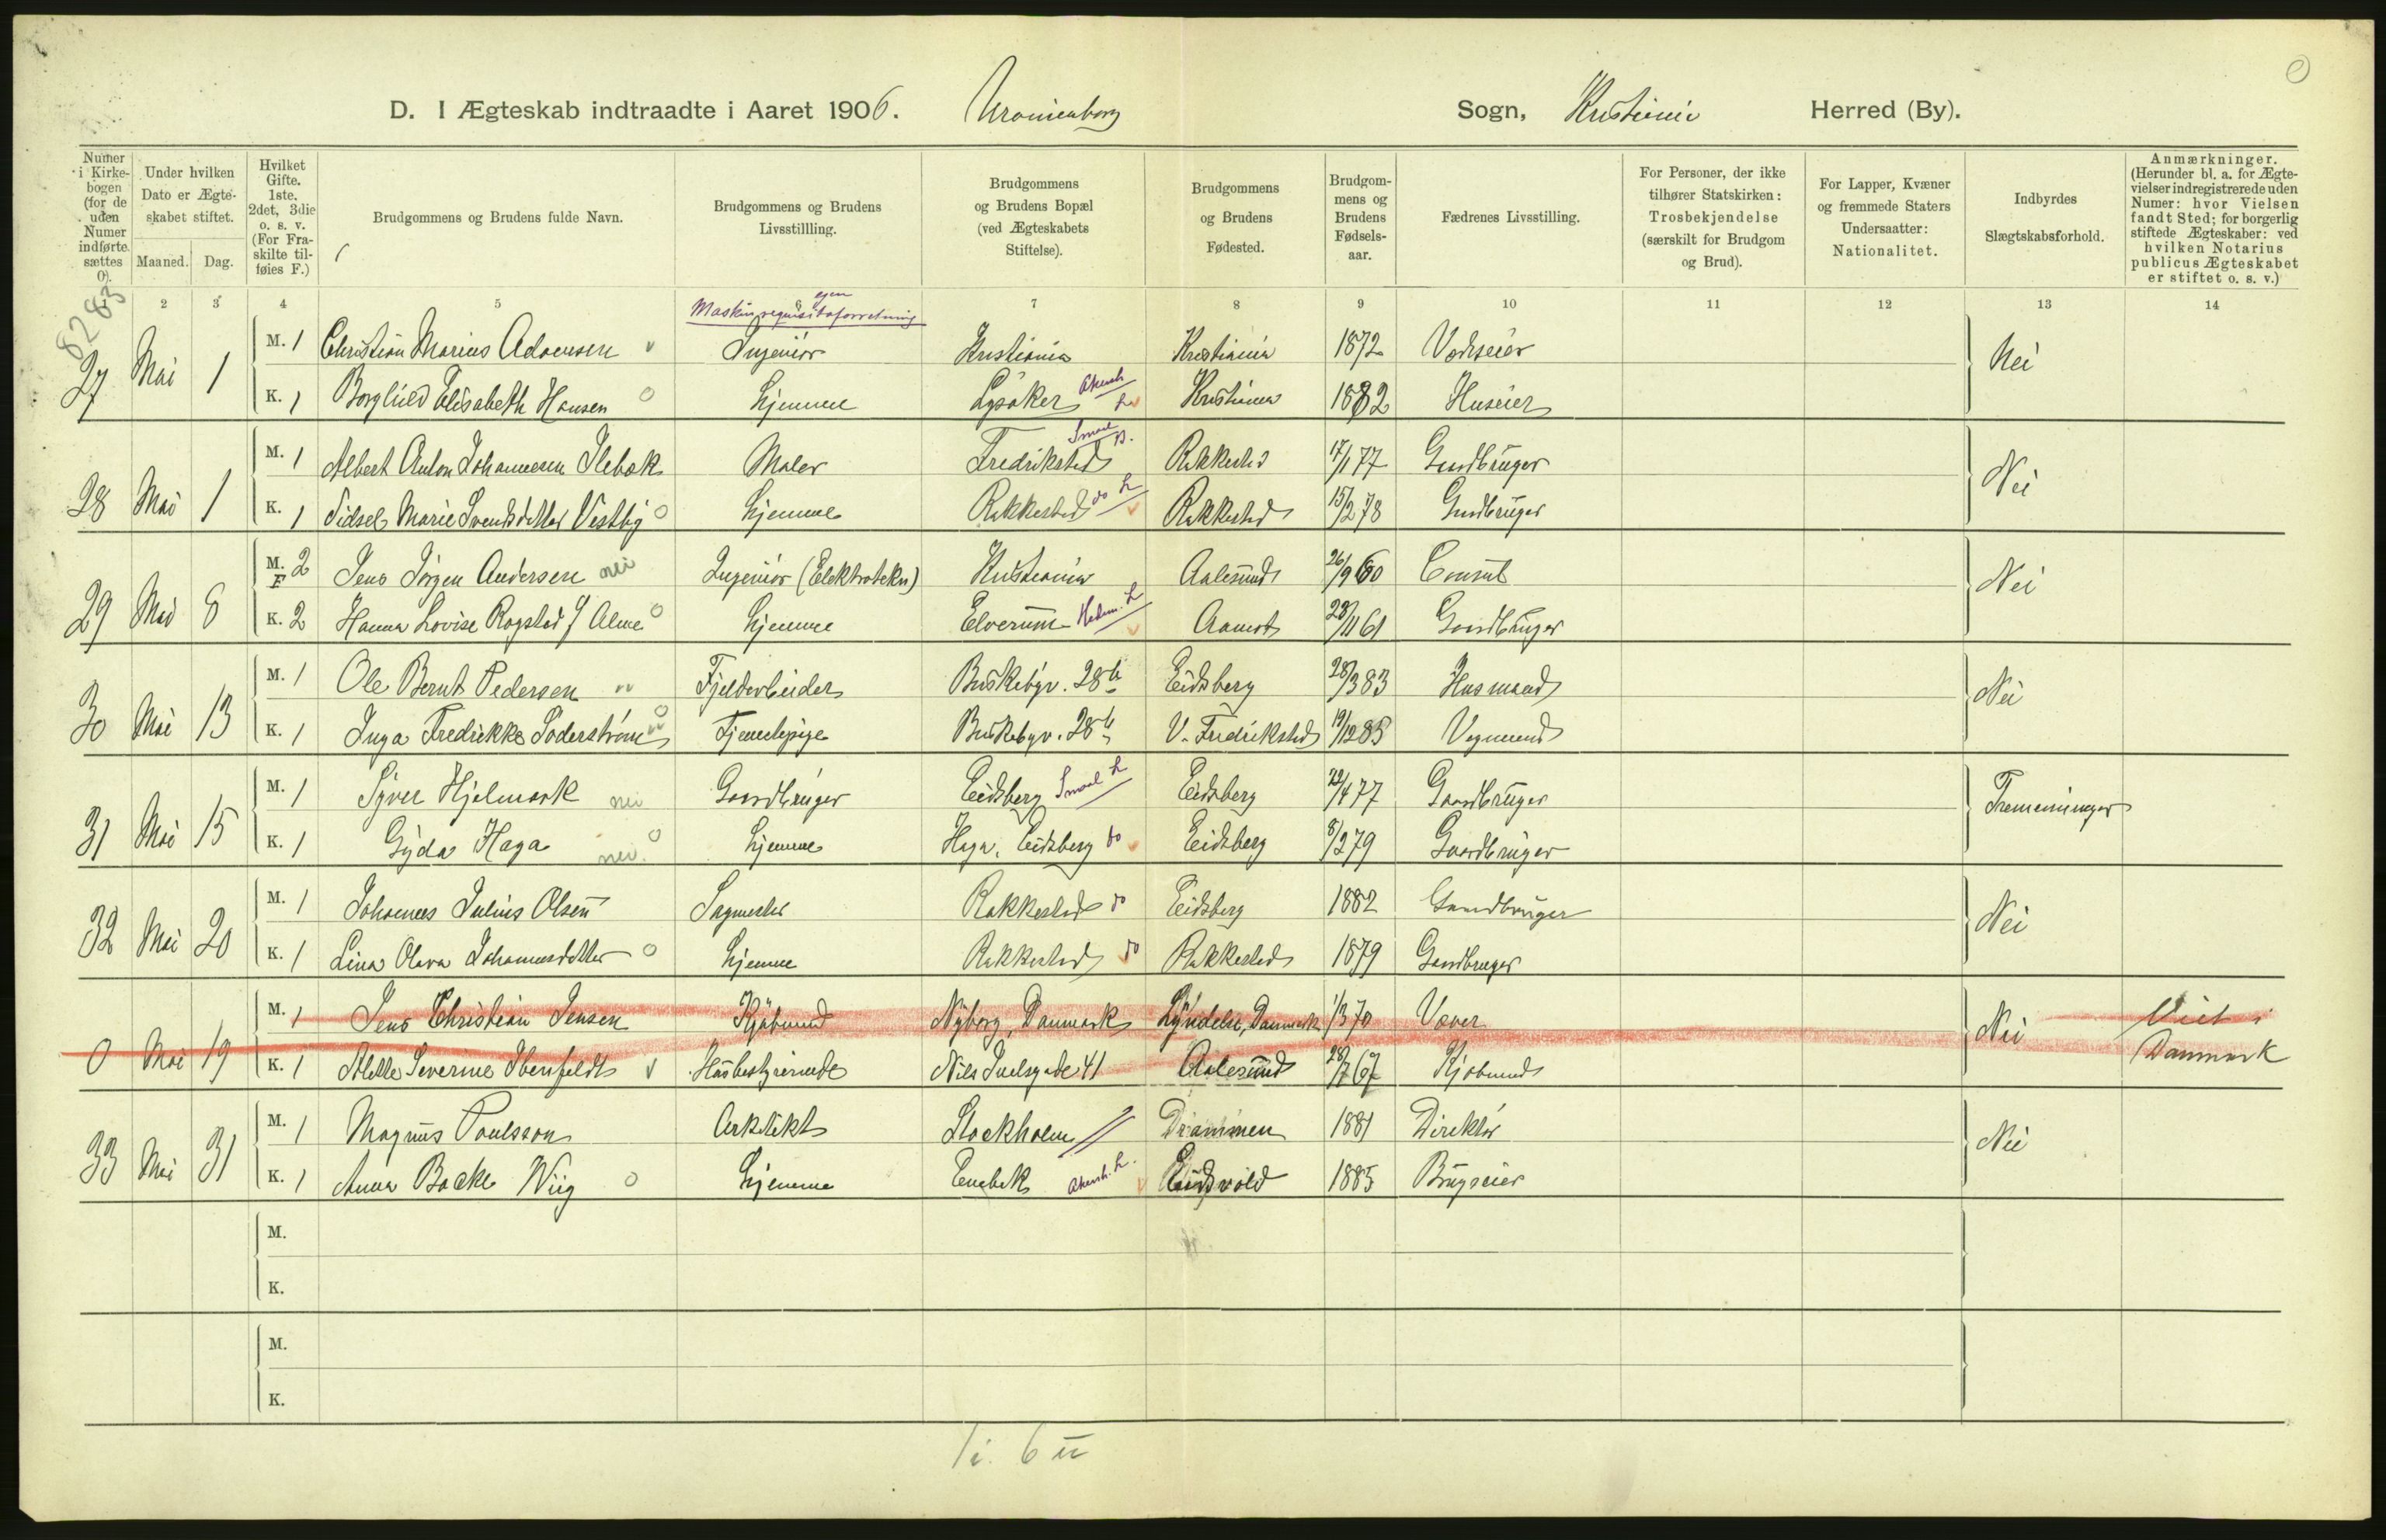 D. I Ægteskab indtraadte i Aaret 1906. Uranienborg Sogn, Kristiania Herred (By).
Numer i Kirke-bogen (for de uden Numer indførte sættes 0).
Under hvilken Dato er Ægte-skabet stiftet.
Maaned. Dag.
Hvilket Gifte. 1ste. 2det, 3die o. s. v. (For Fra-skilte til-føies F.)
Brudgommens og Brudens fulde Navn.
Brudgommens og Brudens Livsstillling.
Brudgommens og Brudens Bopæl (ved Ægteskabets Stiftelse).
Brudgommens og Brudens Fødested.
Brudgom-mens og Brudens Fødsels-aar.
Fædrenes Livsstilling.
For Personer, der ikke tilhører Statskirken: Trosbekjendelse (særskilt for Brudgom og Brud).
For Lapper, Kvæner og fremmede Staters Undersaatter: Nationalitet.
Indbyrdes Slægtskabsforhold.
Anmærkninger. (Herunder bl. a. for Ægte-vielser indregistrerede uden Numer: hvor Vielsen fandt Sted; for borgerlig stiftede Ægteskaber: ved hvilken Notarius publicus Ægteskabet er stiftet o. s. v.)
2 3 4 5 6 7 8 9 10 11 12 13 14
8283
egen
Maskinrequisitaforretning
27 Mai 1 M. 1 Christian Marius Adamsen v Ingeniør Kristiania Kristiania 1872 Værkseier Nei
K. 1 Borghild Elisabeth Hansen o hjemme Lysaker Akersh. L Kristiania 1882 Huseier
28 Mai 1 M. 1 Albert Anton Johannesen Ilebæk Maler Fredrikstad Smaal B. Rakkestad 17/1 77 Gaardbruger Nei
K. 1 Sidsel Marie Svendsdatter Vestby o hjemme Rakkestad do L Rakkestad 15/2 78 Gaardbruger
29 Mai 8 M. 2 F Jens Jørgen Andersen nei Ingeniør (Elektrotekn) Kristiania Aalesund 26/9 60 Consul Nei
K. 2 Hanna Lovise Rogstad f. Alme o hjemme Elverum Hedm. L Aamot 28/11 61 Gaardbruger
30 Mai 13 M. 1 Ole Bernt Pedersen Fjeldarbeider Briskebyv. 28b Eidsberg 28/3 83 Husmand Nei
K. 1 Inga Fredrikke Søderstrøm o Tjenestepige Briskebyv. 28b V. Fredrikstad 19/12 85 Vognmand
31 Mai 15 M. 1 Syver Hjelmark nei Gaardbruger Eidsberg Smaal L Eidsberg 22/4 77 Gaardbruger Tremenninger
K. 1 Gyda Haga nei. o hjemme Haga, Eidsberg do Eidsberg 8/2 79 Gaardbruger
32 Mai 20 M. 1 Johannes Julius Olsen Sagmester Rakkestad do Eidsberg 1882 Gaardbruger Nei
K. 1 Lina Olava Johannesdatter o hjemme Rakkestad do Rakkestad 1879 Gaardbruger
0 Mai 19 M. 1 Jens Christian Jensen Kjøbmand Nyborg, Danmark Lyndelse, Danmark 1/3 70 Væver Nei Viet i
K. 1 Alette Severine Ibenfeldt v Husbestyrerinde Nils Juelsgade 41 Aalesund 28/7 67 Kjøbmand Danmark
33 Mai 31 M. 1 Magnus Poulsson Arkitekt Stockholm Drammen 1881 Direktør Nei
K. 1 Anna Backe Wiig o hjemme Enebak Akersh. L. Eidsvold 1885 Brugseier
M.
K.
M.
K.
1 i. 6 u